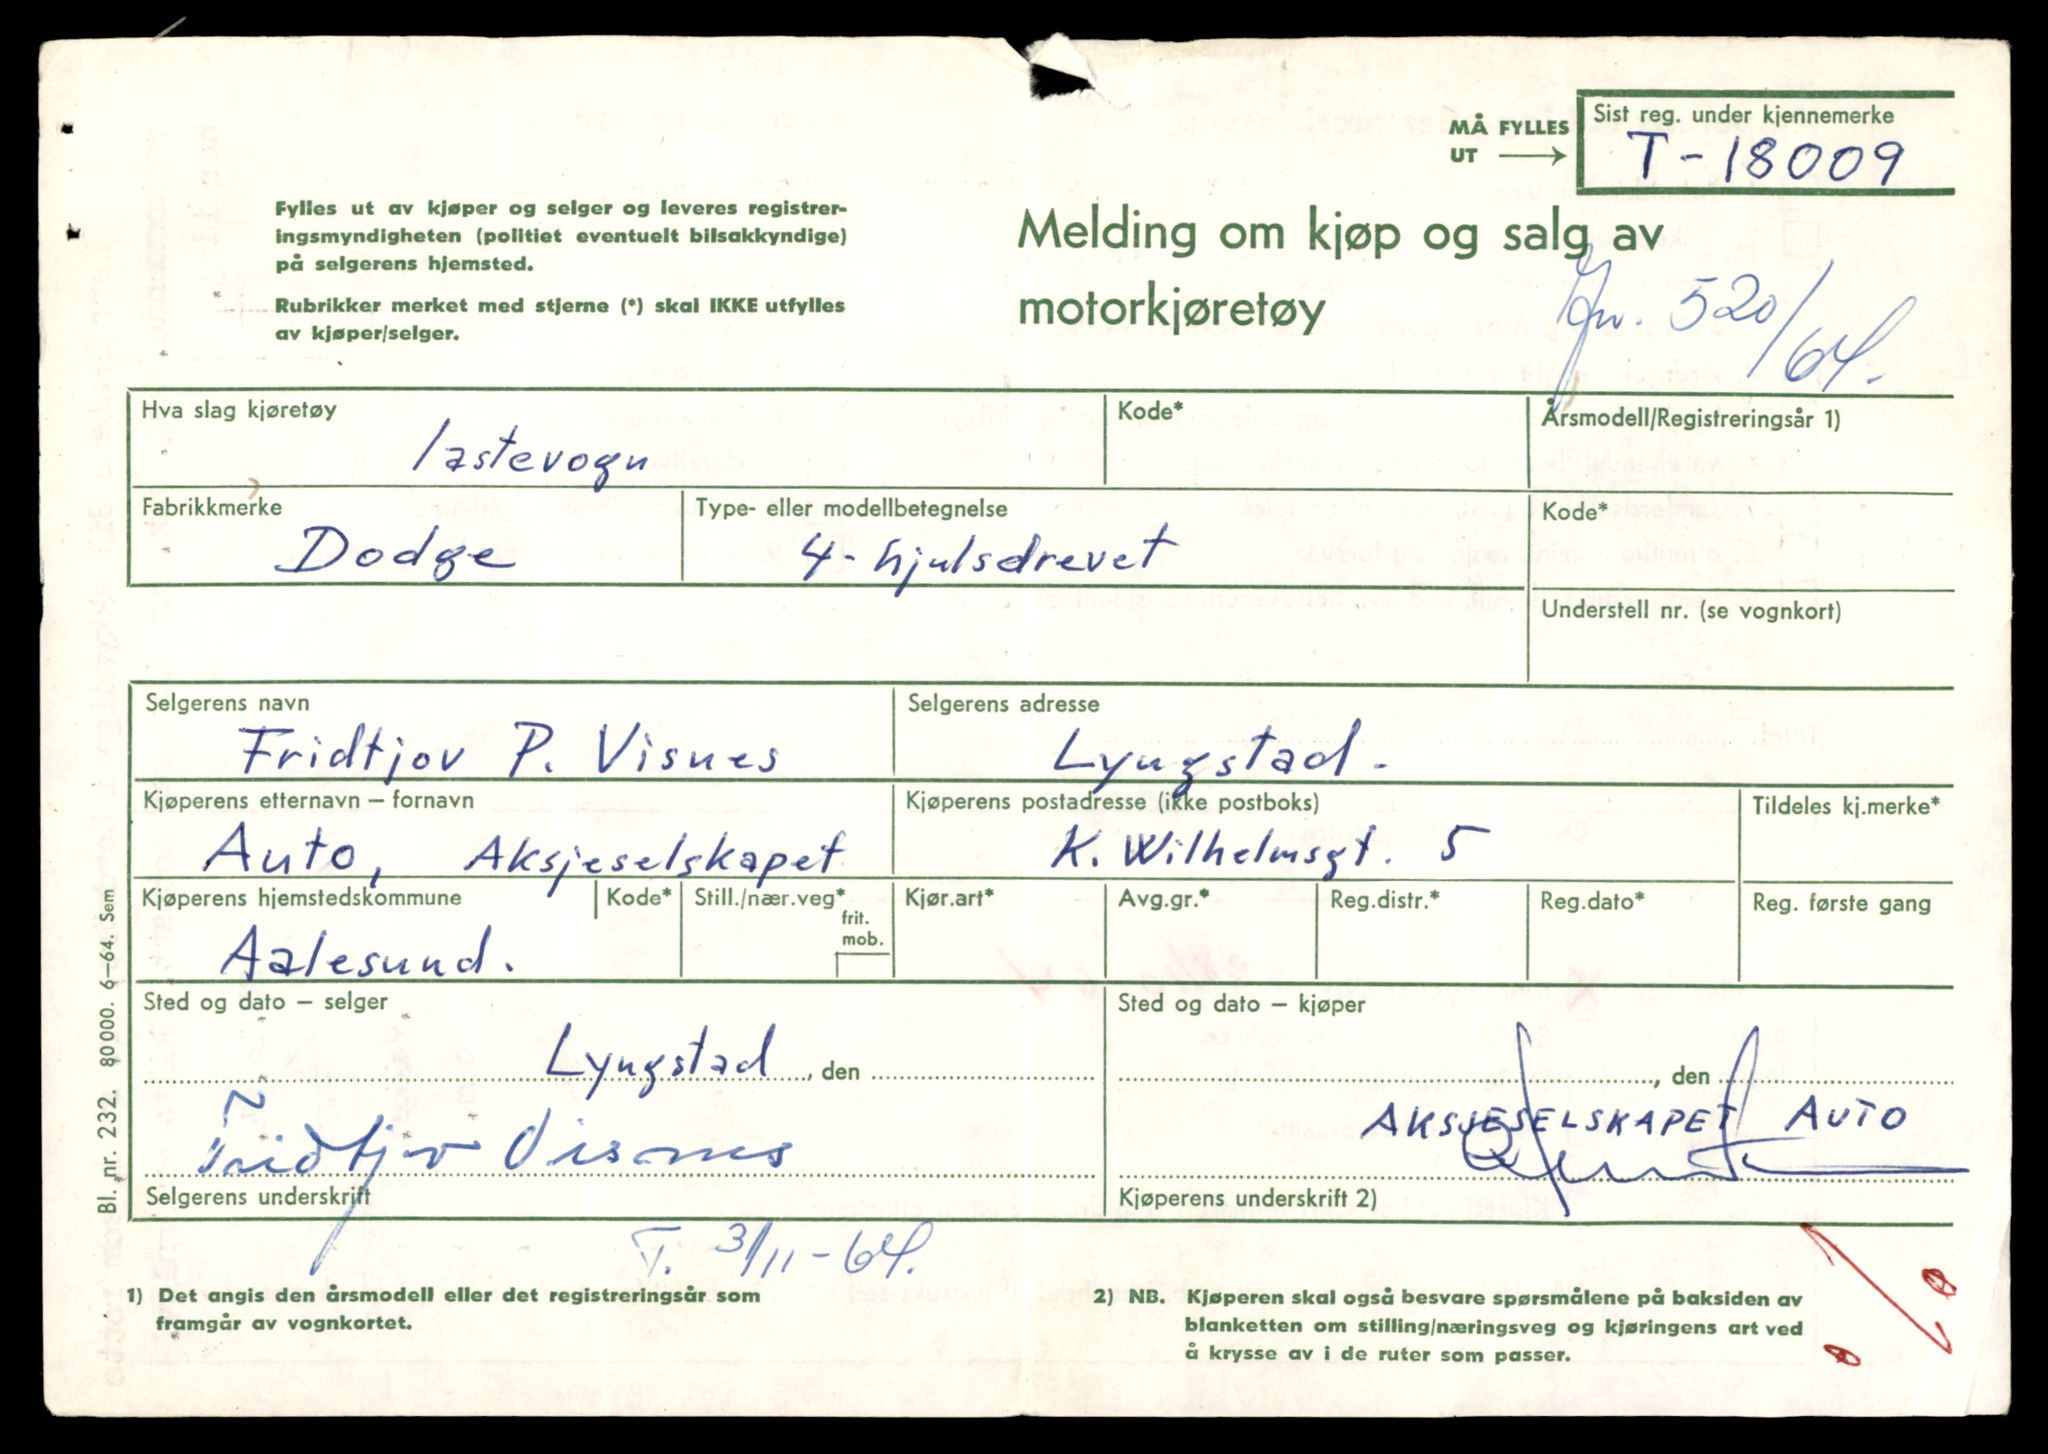 MÅ FYLLES
UT
Sist reg. under kjennemerke
T-18009
Fylles ut av kjøper og selger og leveres registrer-
ingsmyndigheten (politiet eventuelt bilsakkyndige)
på selgerens hjemsted.
Rubrikker merket med stjerne (*) skal IKKE utfylles
av kjøper/selger.
Melding om kjøp og salg av
motorkjøretøy
Jnr. 520/64.
Hva slag kjøretøy
lastevogn
Kode*
Årsmodell/Registreringsår 1)
Fabrikkmerke
Dodge
Type- eller modellbetegnelse
4-hjulsdrevet
Kode*
Understell nr. (se vognkort)
Selgerens navn
Fridtjov P. Visnes
Selgerens adresse
Lyngstad.
Kjøperens etternavn – fornavn
Auto, Aksjeselskapet
Kjøperens postadresse (ikke postboks)
K. Wilhelmsgt. 5
Tildeles kj.merke*
Kjøperens hjemstedskommune
Aalesund.
Kode*
Still./nær.veg*
frit.
mob.
Kjør.art*
Avg.gr.*
Reg.distr.*
Reg.dato*
Reg. første gang
Sted og dato – selger
Lyngstad, den
Fridtjov Visnes
Selgerens underskrift
Sted og dato – kjøper
, den
AKSJESELSKAPET AUTO
Kjøperens underskrift 2)
T. 3/11-64.
1) Det angis den årsmodell eller det registreringsår som
framgår av vognkortet.
2) NB. Kjøperen skal også besvare spørsmålene på baksiden av
blanketten om stilling/næringsveg og kjøringens art ved
å krysse av i de ruter som passer.
Bl. nr. 2332. 80000. 6–64. Sem